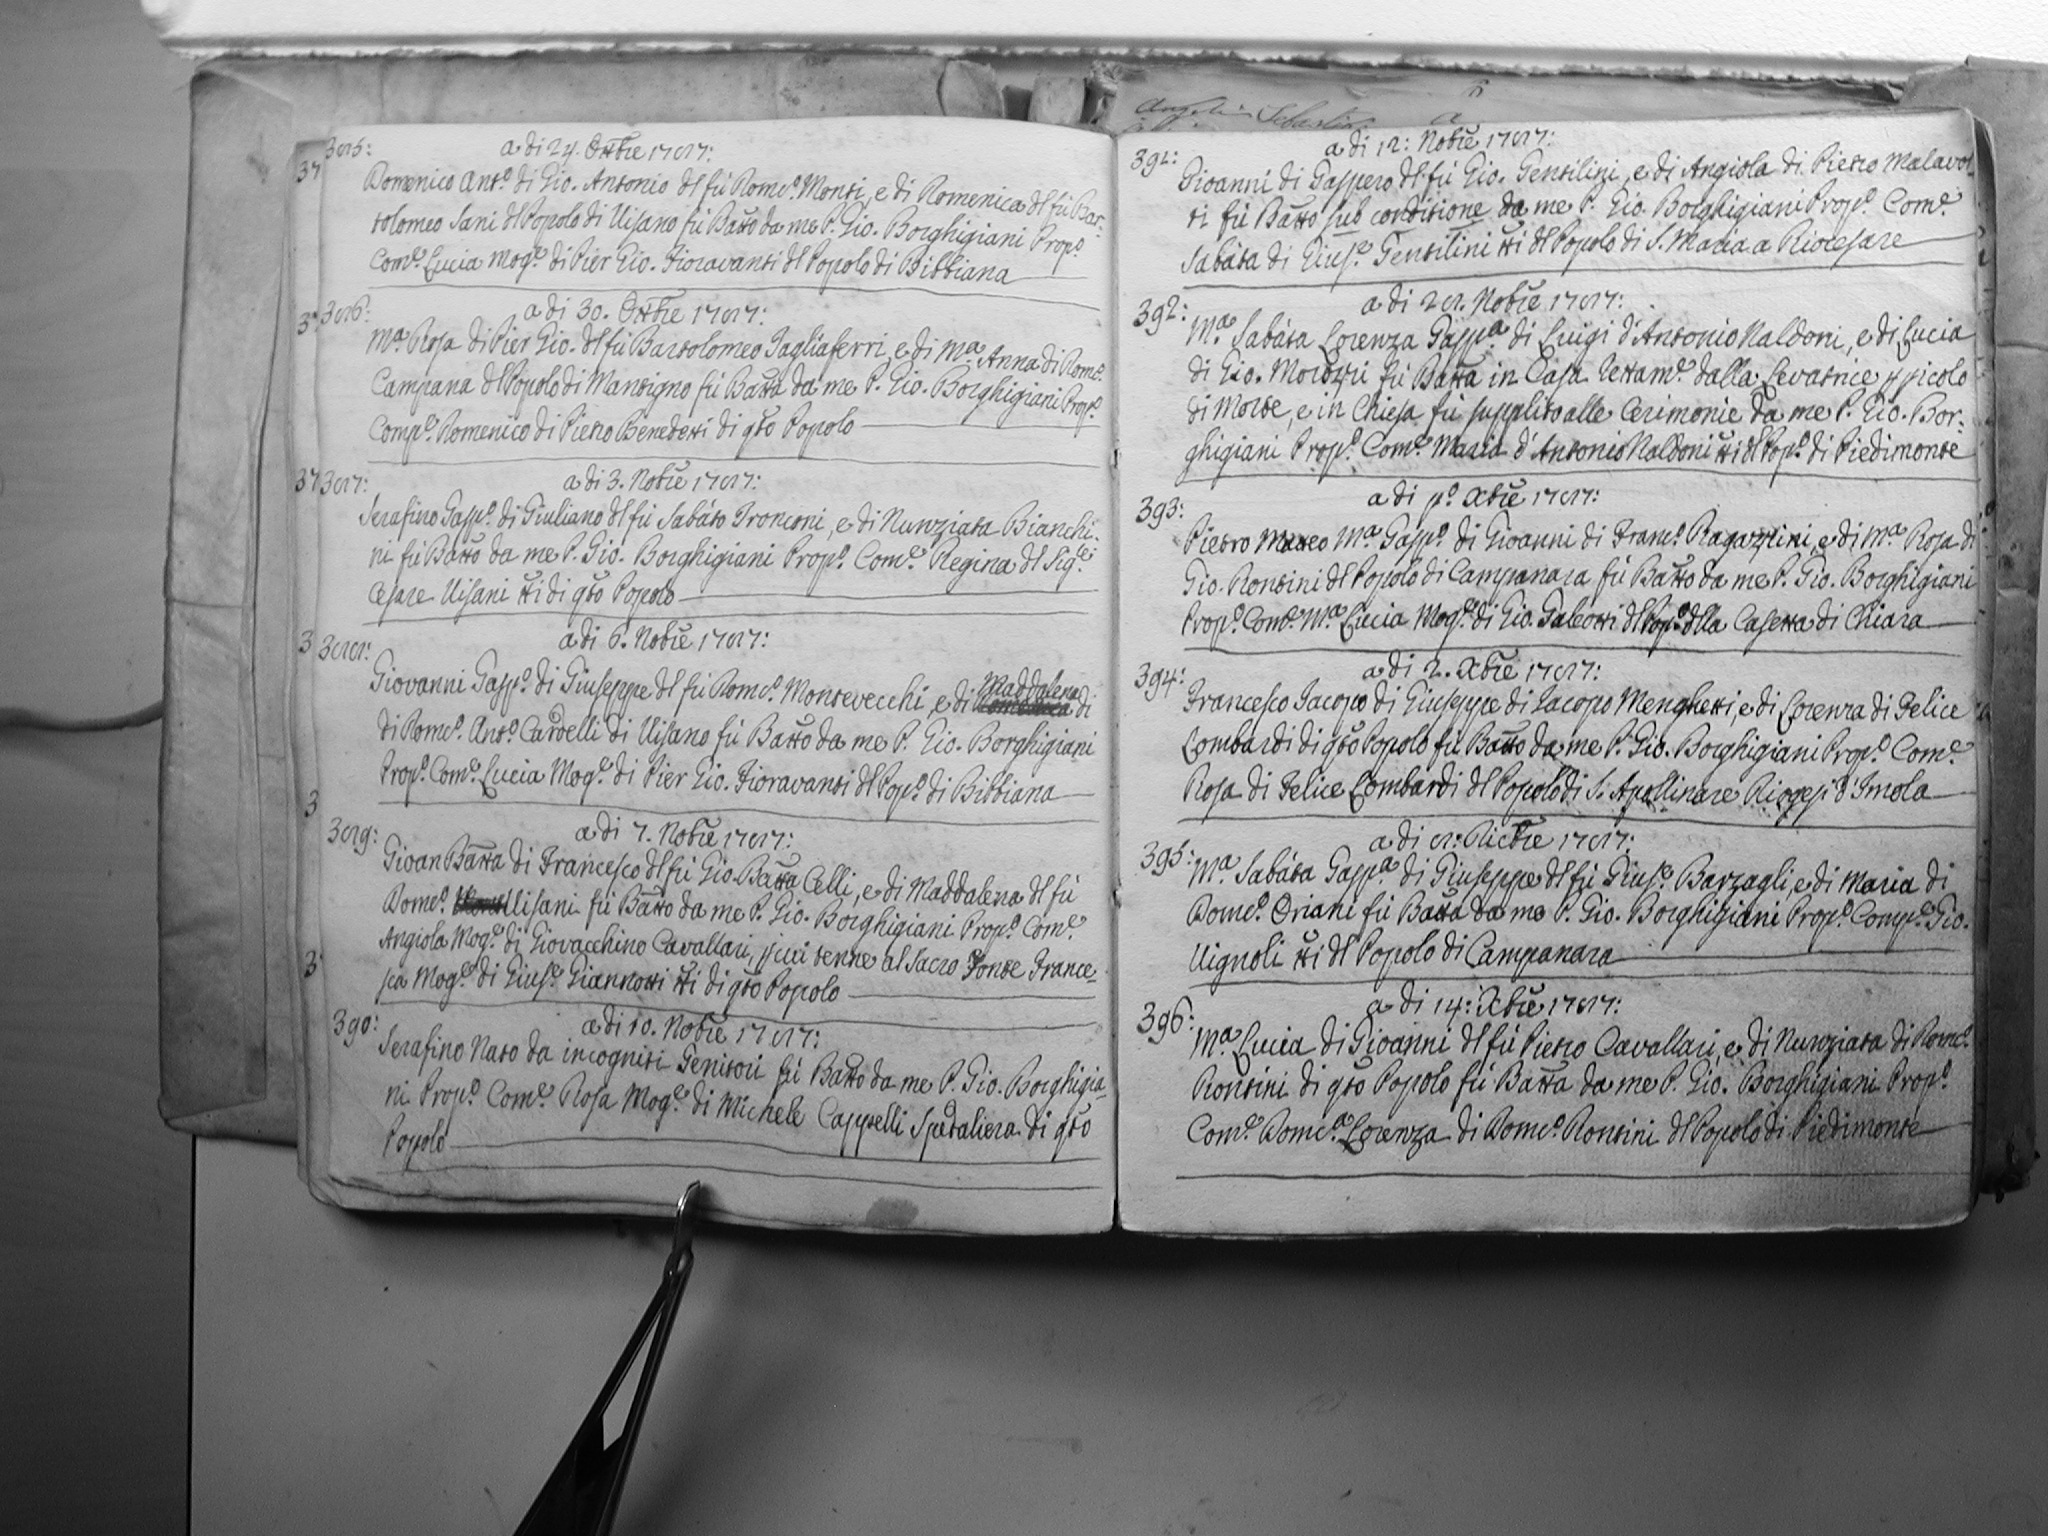 385: a di 24. Ottbre 1787:
Domenico Ant.o di Gio. Antonio dl fù Dom.co Monti, e di Domenica dl fù Bar-
tolomeo Sani dl Popolo di Visano fù Batto da me P. Gio. Borghigiani Prop.o
Com.e Lucia Mog.e di Pier Gio. Fioravanti dl Popolo di Bibbiana
386: a di 30. Ottbre 1787:
M.a Rosa di Pier Gio. dl fù Bartolomeo Tagliaferri, e di M.a Anna di Dom.co
Campana dl Popolo di Mantigno fù Batta da me P. Gio. Borghigiani Prop.o
Comp.e Domenico di Pietro Benedetti di qto Popolo
387: a di 3. Nobre 1787:
Serafino Gasp.o di Giuliano dl fù Sabáto Tronconi, e di Nunziata Bianchi-
ni fù Batto da me P. Gio. Borghigiani Prop.o Com.e Regina dl Sig.e
Cesare Visani tti di qto Popolo
388: a di 6. Nobre 1787:
Giovanni Gasp.o di Giuseppe dl fù Dom.co Montevecchi, e di Maddalena di
di Dom.co Ant.o Cardelli di Visano fù Batto da me P. Gio. Borghigiani
Prop.o Com.e Lucia Mog.e di Pier Gio. Fioravanti dl Pop.o di Bibbiana
389: a di 7. Nobre 1787:
Gioan Batta di Francesco dl fù Gio. Batta Celli, e di Maddalena dl fù
Dom.co Visani fù Batto da me P. Gio. Borghigiani Prop.o Com.e
Angiola Mog.e di Giovacchino Cavallari, p cui tenne al Sacro Fonte France-
sca Mog.e di Gius.e Giannotti tti di qto Popolo
390: a di 10. Nobre 1787:
Serafino Nato da incogniti Genitori fù Batto da me P. Gio. Borghigia-
ni Prop.o Com.e Rosa Mog.e di Michele Cappelli Spedaliera di qto
Popolo
391: a di 12: Nobre 1787:
Gioanni di Gaspero dl fù Gio. Gentilini, e di Angiola di Pietro Malavol-
ti fù Batto sub conditione da me P. Gio. Borghigiani Prop.o Com.e
Sabáta di Gius.e Gentilini tti dl Popolo di S. Maria a Riocesare
392: a di 28. Nobre 1787:
M.a Sabáta Lorenza Gasp.a di Luigi d'Antonio Naldoni, e di Lucia
di Gio. Morozzi fù Batta in Casa dalla Levatrice p picolo
di Morte, e in Chiesa fù supplito alle Cerimonie da me P. Gio. Bor-
ghigiani Prop.o Com.e Maria d'Antonio Naldoni tti dl Pop.o di Piedimonte
393: a di p.o Xbre 1787:
Pietro Matteo M.a Gasp.o di Gioanni di Fran.co Ragazzini, e di M.a Rosa di
Gio. Rontini dl Popolo di Campanara fù Batto da me P. Gio. Borghigiani
Prop.o Com.e M.a Lucia Mog.e di Gio. Galeotti dl Pop.o dlla Casetta di Chiara
394: a di 2. Xbre 1787:
Francesco Iacopo di Giuseppe di Iacopo Menghetti, e di Lorenza di Felice
Lombardi di qto Popolo fù Batto da me P. Gio. Borghigiani Prop.o Com.e
Rosa di Felice Lombardi dl Popolo di S. Apollinare d'Imola
395: a di 8: Dicbre 1787:
M.a Sabáta Gasp.a di Giuseppe dl fù Gius.e Barzagli, e di Maria di
Dom.co Oriani fù Batta da me P. Gio. Borghigiani Prop.o Comp.e Gio.
Vignoli tti dl Popolo di Campanara
396: a di 14: Xbre 1787:
M.a Lucia di Gioanni dl fù Pietro Cavallari, e di Nunziata di Dom.co
Rontini di qto Popolo fù Batta da me P. Gio. Borghigiani Prop.o
Com.e Dom.ca Lorenza di Dom.co Rontini dl Popolo di Piedimonte